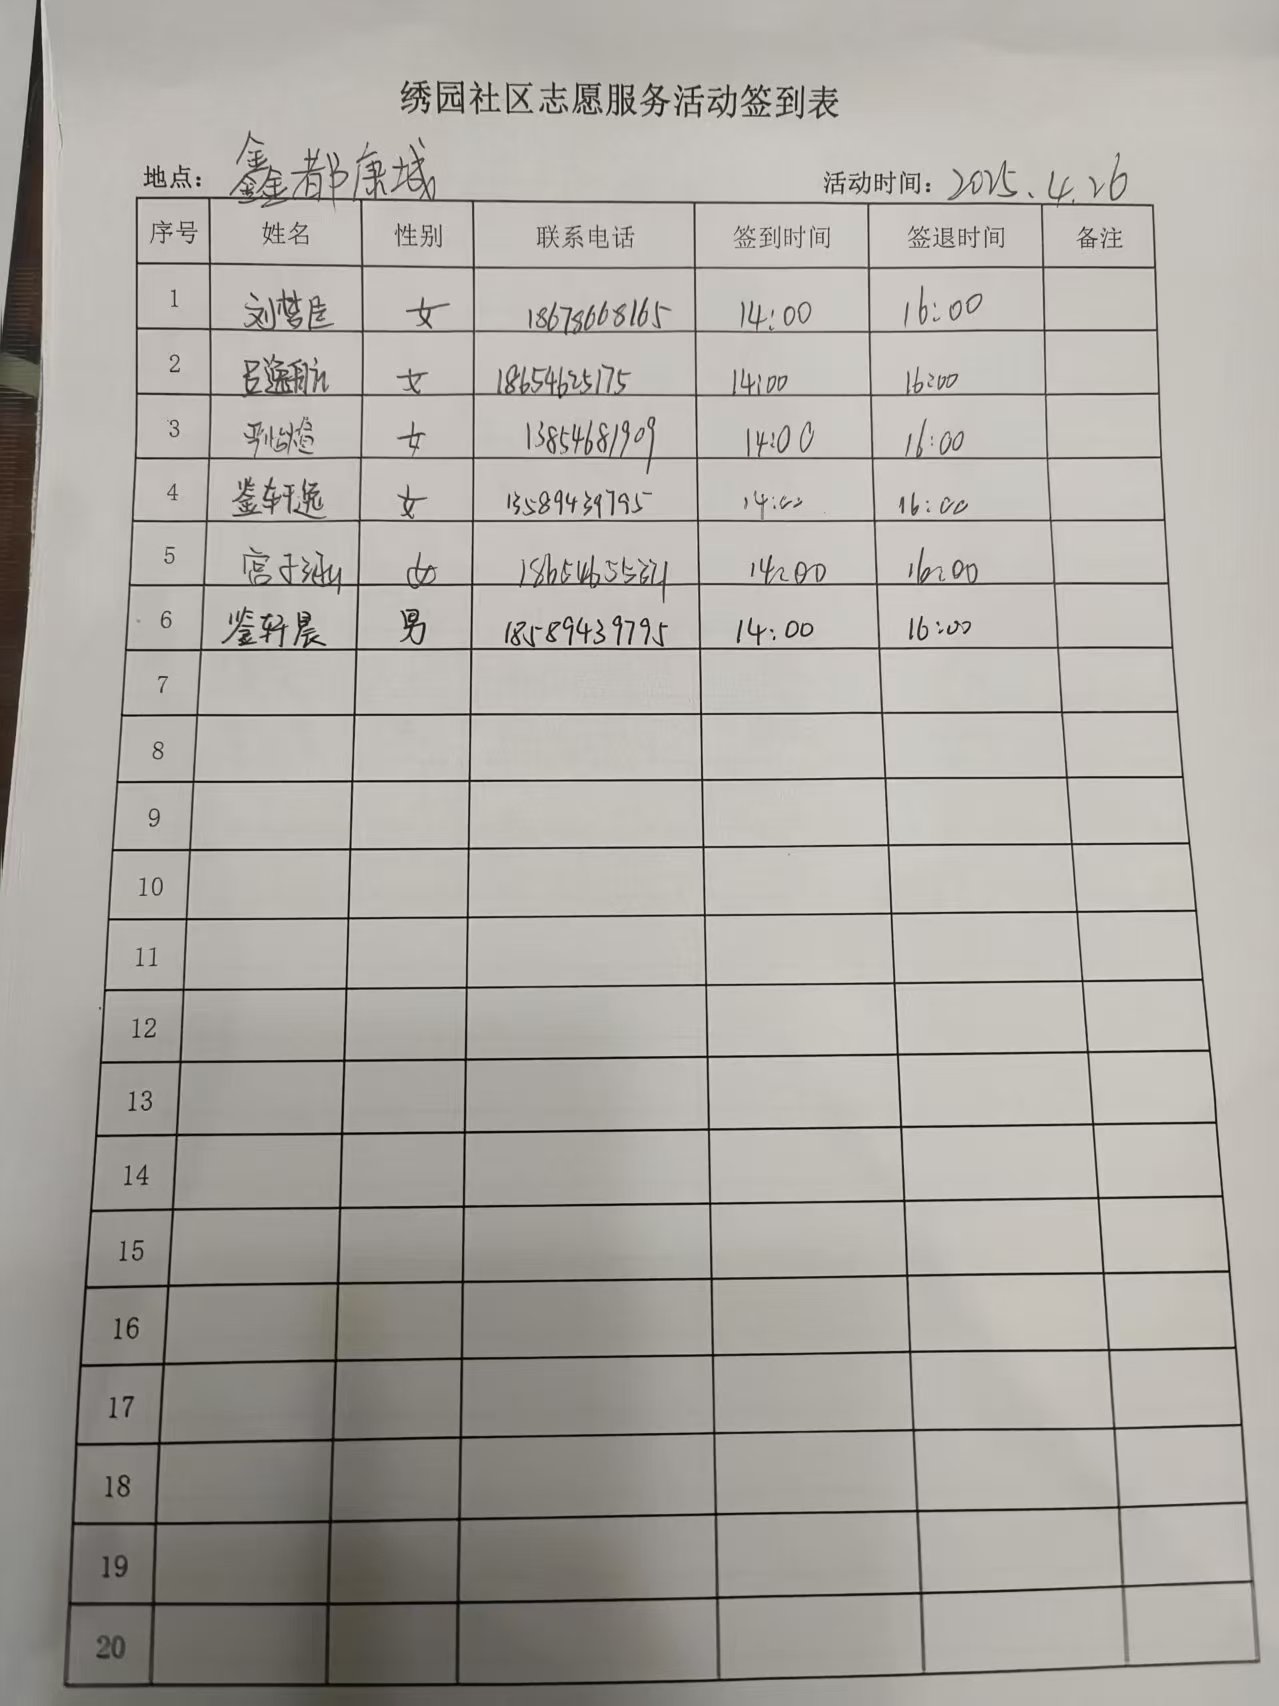 绣园社区志愿服务活动签到表
地点： 鑫都康城 活动时间：2025.4.26
序号 姓名 性别 联系电话 签到时间 签退时间 备注
1 刘梦臣 女 18678668165 14:00 16:00
2 吕逸航 女 18654625175 14:00 16:00
3 女 13854681909 14:00 16:00
4 鉴轩逸 女 13589439795 14:00 16:00
5 宫子涵 女 14:00 16:00
6 鉴轩晨 男 18589439795 14:00 16:00
7
8
9
10
11
12
13
14
15
16
17
18
19
20